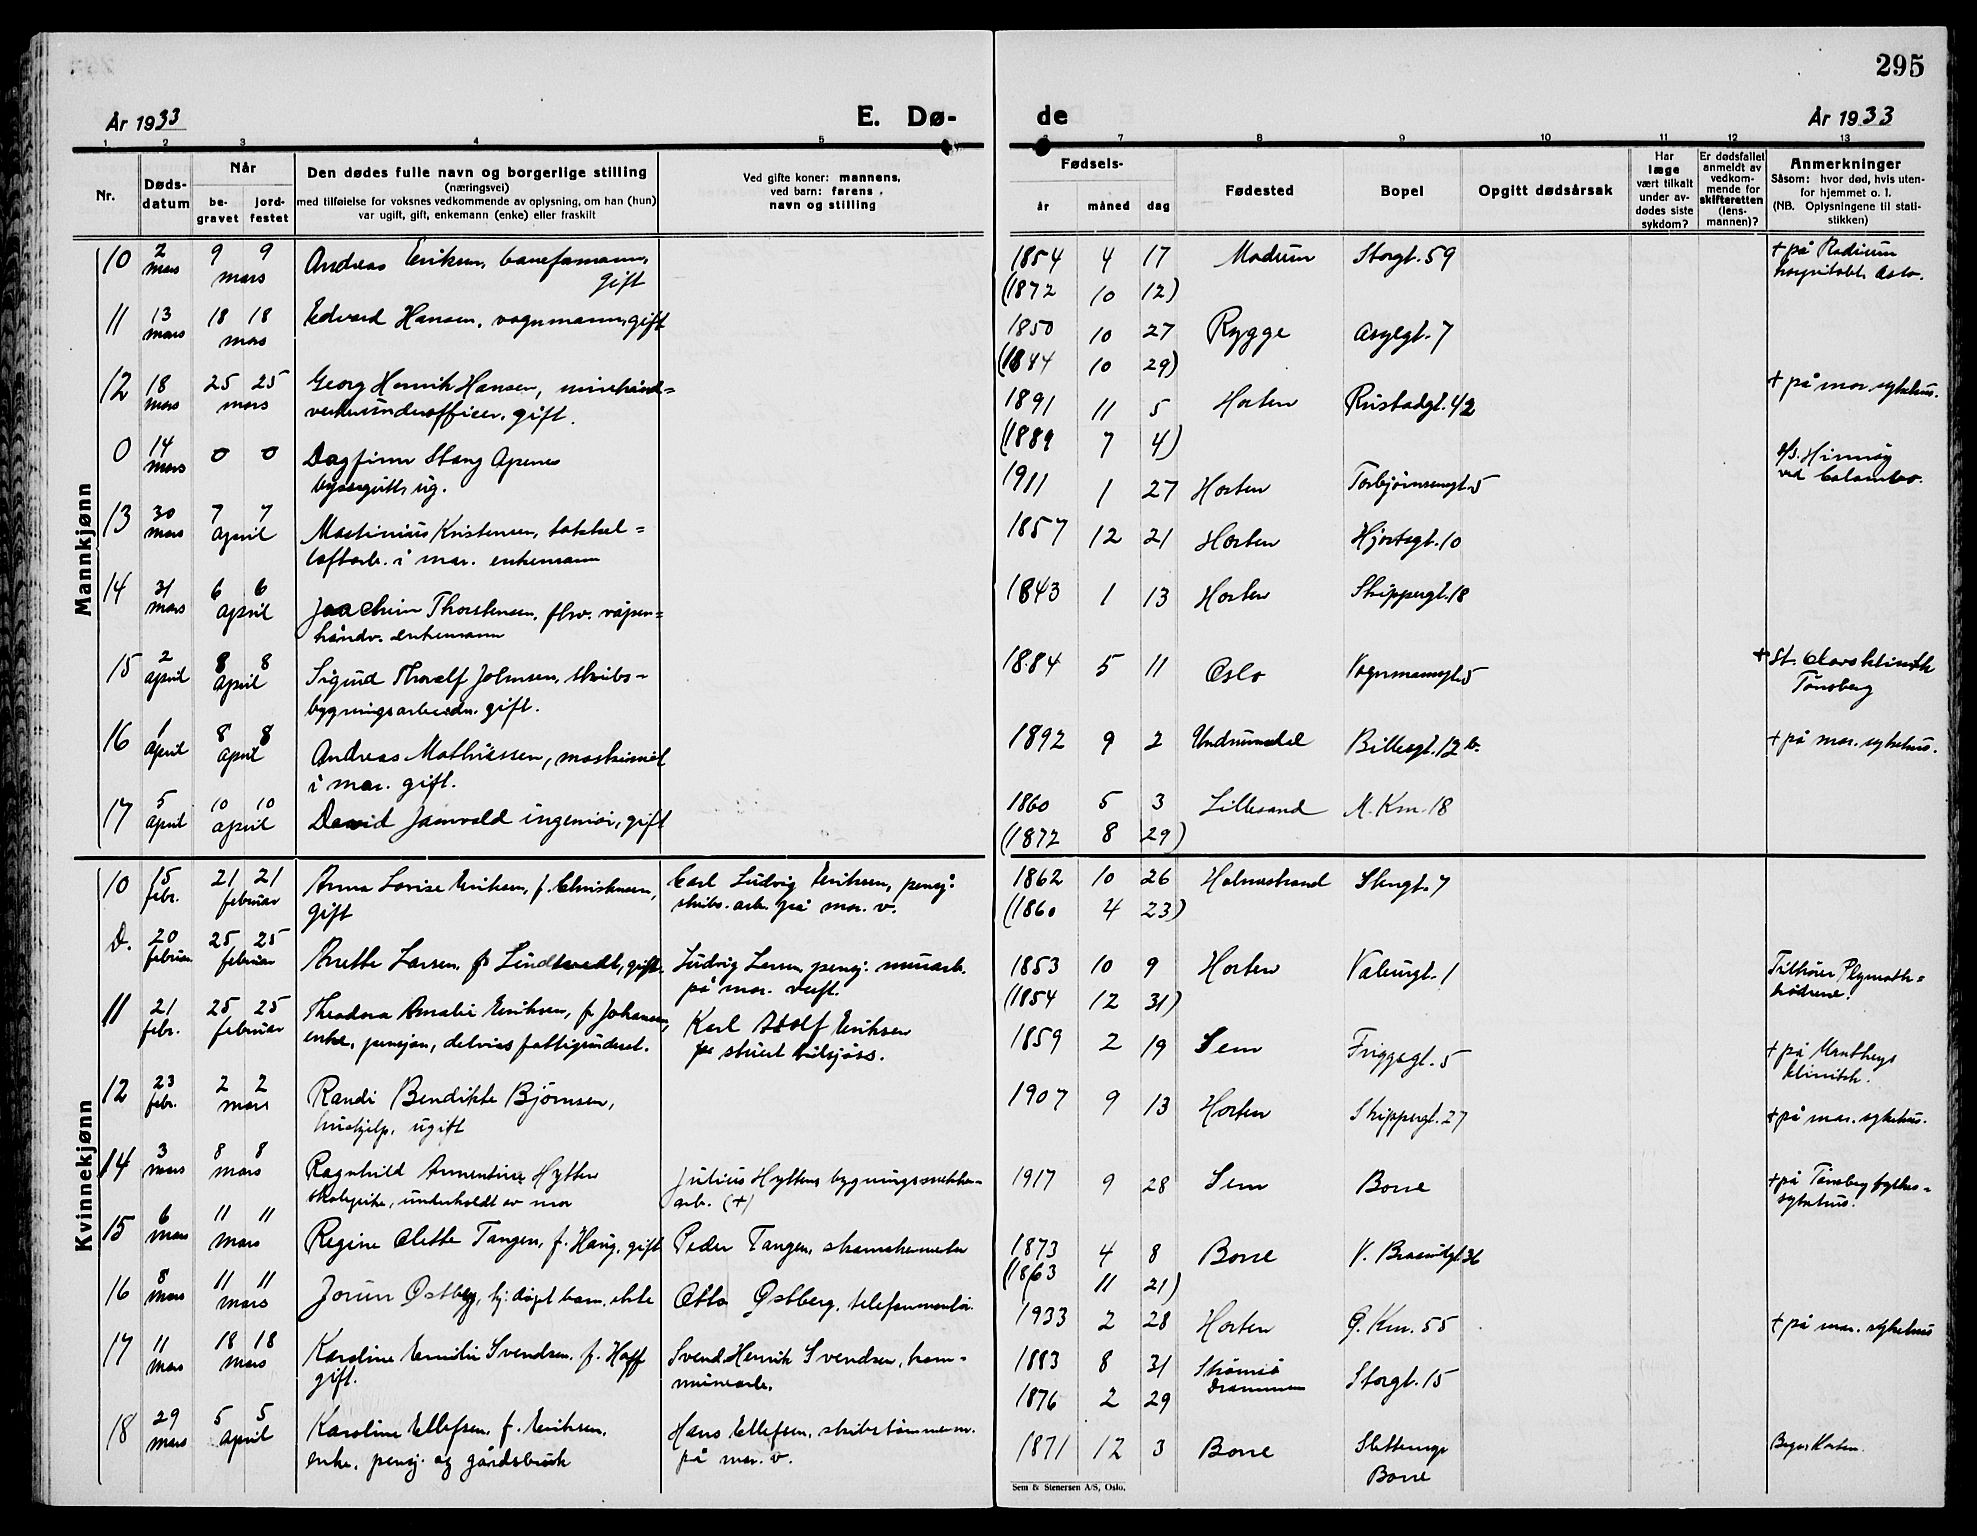 295
År 1933
E. Dø-
de
År 1933
1 2 3 4 5
6 7 8 9 10 11 12 13
Nr.
Døds-
datum
Når
be-
gravet
jord-
festet
Den dødes fulle navn og borgerlige stilling
(næringsvei)
med tilføielse for voksnes vedkommende av oplysning, om han (hun)
var ugift, gift, enkemann (enke) eller fraskilt
Ved gifte koner: mannens,
ved barn: farens
navn og stilling
Fødsels-
år måned dag
Fødested
Bopel
Opgitt dødsårsak
Har
læge
vært tilkalt
under av-
dødes siste
sykdom?
Er dødsfallet
anmeldt av
vedkom-
mende for
skifteretten
(lens-
mannen)?
Anmerkninger
Såsom: hvor død, hvis uten-
for hjemmet o. l.
(NB. Oplysningene til stati-
stikken)
Mannkjønn
10 2 mars 9 9 mars Andreas Eriksen, baneformann,
gift
1854 4 17 Modum Storgt. 59 + på Radium
hospitalet Oslo.
(1872 10 12)
11 13 mars 18 18 mars Edvard Hansen, vognmann, gift
1850 10 27 Rygge Asylgt. 7
(1844 10 29)
12 18 mars 25 25 mars Georg Henrik Hansen, minehånd=
verkerunderofficer, gift.
1891 11 5 Horten Rustadgt. 42 + på mar. sykehus.
(1889 7 4)
0 14 mars 0 0 Dagfinn Stang Apenes
byssegutt, ug.
1911 1 27 Horten Torbjørnsensgt. 5 M/S. Hinnøy
ved Colombo.
13 30 mars 7 7 april Martinius Kristensen, takkel=
loftarb. i mar. enkemann
1857 12 21 Horten Hjortsgt. 10
14 31 mars 6 6 april Joachim Thorstensen, fhv. våpen=
håndv. enkemann
1843 1 13 Horten Skippergt. 18
15 2 april 8 8 april Sigurd Thoralf Johnsen, skibs-
bygningsarbeider, gift.
1884 5 11 Oslo Vognmannsgt. 5 + St. Olavs klinikk
Tønsberg
16 1 april 8 8 april Andreas Mathiassen, maskinist
i mar. gift.
1892 9 2 Undrumsdal Billesgt. 12 b. + på mar. sykehus.
17 5 april 10 10 april David Jamvold ingeniør, gift
1860 5 3 Lillesand M. Km. 18
(1872 8 29)
Kvinnekjønn
10 15 febr. 21 21 februar Anna Lovise Eriksen, f. Christensen,
gift
Carl Ludvig Eriksen, pensj.
skibs. arb. på mar. v.
1862 10 26 Holmestrand Stengt. 7
(1860 4 23)
D. 20 februar 25 25 februar Anette Larsen, f. Lindtvedt, gift.
Ludvig Larsen pensj. murarb.
på mar. verft.
1853 10 9 Horten Valeurgt. 1 Tilhører Plymouth=
brødrene.
(1854 12 31)
11 21 febr. 25 25 februar Theodora Amalie Eriksen, f. Johansen,
enke, pensjon, delvis fattigunderst.
Karl Adolf Eriksen
stuert tilsjøss.
1859 2 19 Sem Friggsgt. 5 + på
klinikk.
12 23 febr. 2 2 mars Randi Bendikte Bjørnsen,
hushjelp, ugift
1907 9 13 Horten Skippergt. 27 + på mar. sykehus.
14 3 mars 8 8 mars Ragnhild Annentine Hytten
skolepike, underholdt av mor
Julius Hytten, bygningssnekker-
arb. (+)
1917 9 28 Sem Borre + på Tønsberg fylkes=
sykehus.
15 6 mars 11 11 mars Regine Olette Tangen, f. Haug, gift
Peder Tangen, skomakermester
1873 4 8 Borre V. Braarudgt. 36
(1863 11 21)
16 8 mars 11 11 mars Jorun Østberg, hj. døpt barn, ekte
Otto Østberg, telefonmontør.
1933 2 28 Horten G. Km. 55 + på mar. sykehus
17 11 mars 18 18 mars Karoline Emilie Svendsen, f. Hoff
gift.
Svend Henrik Svendsen, tøm-
minearb.
1883 8 31 Strømsø
Drammen
Storgt. 15
1876 2 29
18 29 mars 5 5 april Karoline Ellefsen, f. Eriksen,
enke, pensj. og gårdsbruk
Hans Ellefsen, skibstømmerm.
på mar. v.
1871 12 3 Borre Slettunge
Borre
Begr. Horten.
Sem & Stenersen A/S, Oslo.